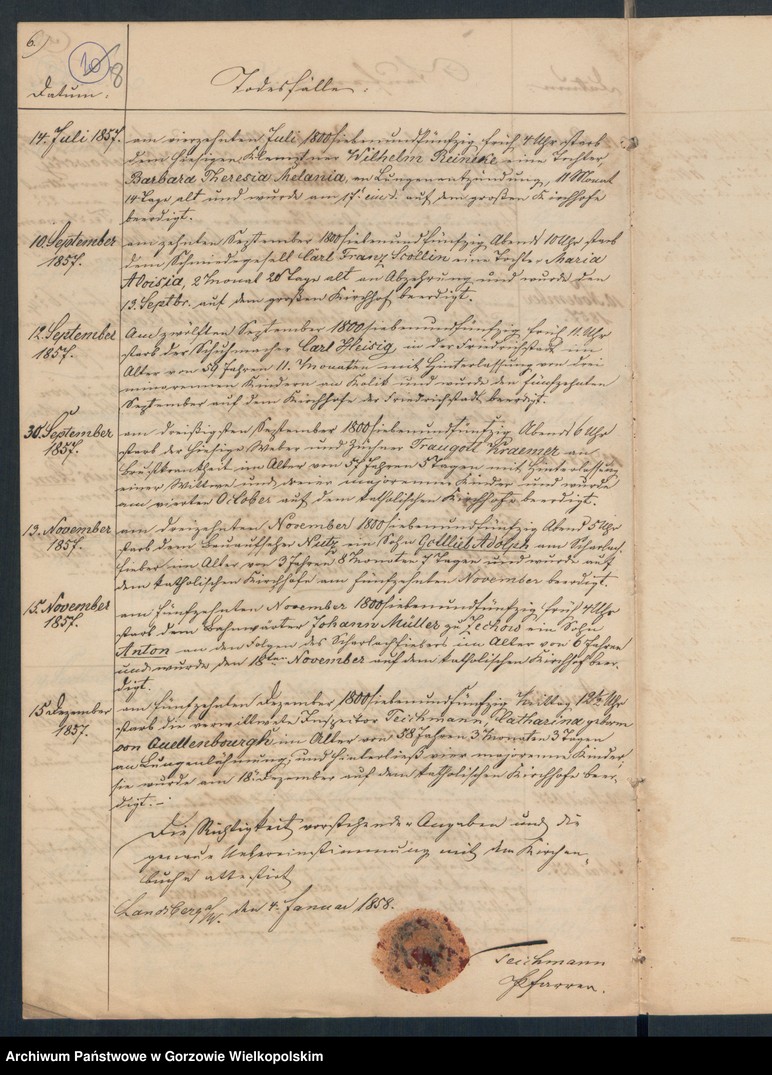 6.)
10
8
Datum.
Todesfälle.
14. Juli 1857.
am vierzehnten Juli 1800 siebenundfünfzig früh 4 Uhr starb
dem hiesigen Klemptner Wilhelm Reincke eine Tochter
Barbara Theresia Melania, an Lungenentzündung, 11 Monat
14 Tage alt und wurde am 17. ejusd. auf dem großen Kirchhofe
beerdigt.
10. September
1857.
am zehnten September 1800 siebenundfünfzig Abends 10 Uhr starb
dem Schmiedegesell Carl Franz Scollin eine Tochter Maria
Aloisia, 2 Monat 26 Tage alt an Abzehrung und wurde den
13. Septbr. auf dem großen Kirchhof beerdigt.
12. September
1857.
Am zwölften September 1800 siebenundfünfzig früh 11 Uhr
starb der Schuhmacher Carl Heisig, in der Friedrichstadt im
Alter von 59 Jahren 11. Monaten mit Hinterlassung von drei
minorennen Kindern an Kolik und wurde den fünfzehnten
September auf dem Kirchhofe der Friedrichstadt beerdigt.
30. September
1857.
am dreißigsten September 1800 siebenundfünfzig Abends 6 Uhr
starb der hiesige Weber und Züchner Traugott Kraemer an
Brustkrankheit im Alter von 57 Jahren 5 Tagen mit Hinterlassung
einer Wittwe und dreier majorenner Kinder und wurde
am vierten October auf dem katholischen Kirchhofe beerdigt.
13. November
1857.
am dreizehnten November 1800 siebenundfünfzig Abend 5 Uhr
starb dem Bauaufseher Nutz ein Sohn Gottlieb Adolph am Scharlach-
fieber im Alter von 3 Jahren 8 Monaten 7 Tagen und wurde auf
dem katholischen Kirchhofe am fünfzehnten November beerdigt.
15. November
1857.
am fünfzehnten November 1800 siebenundfünfzig früh 4 Uhr
starb dem Bahnwärter Johann Müller zu Zechow ein Sohn
Anton an den Folgen des Scharlachfiebers im Alter von 6 Jahren
und wurde den 18ten November auf dem katholischen Kirchhof beer-
digt.
15 Dezember
1857.
am fünfzehnten Dezember 1800 siebenundfünfzig Mittag 12 Uhr
starb die verwittwete Inspector Teichmann, Catharina geborne
von Quellenbourgh im Alter von 58 Jahren 3 Monaten 3 Tagen
an Lungenlähmung, und hinterließ vier majorenne Kinder,
sie wurde am 18. Dezember auf dem katholischen Kirchhofe beer-
digt.
Die Richtigkeit vorstehender Angaben und die
genaue Uebereinstimmung mit dem Kirchen-
buche attestirt
Landsberg a/W. den 4. Januar 1858.
Teichmann
Pfarrer.
Archiwum Państwowe w Gorzowie Wielkopolskim